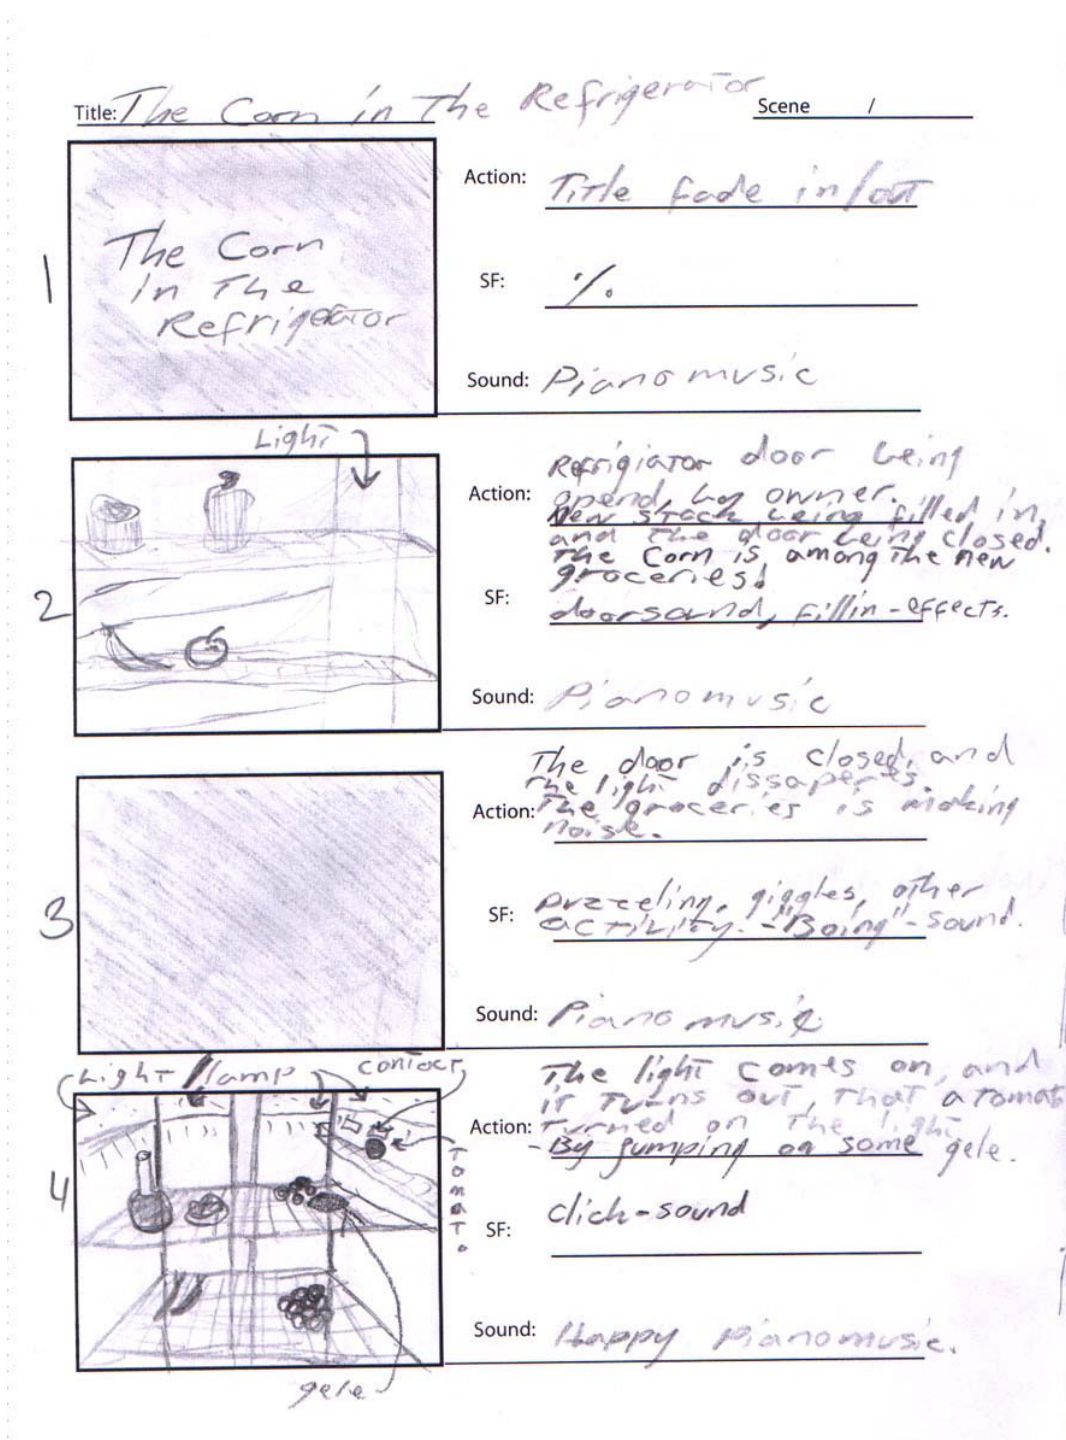 Title: The Corn in The Refrigerator
Scene /
1
The Corn
in The
Refrigerator
Action: Title fade in/out
SF: ·/.
Sound: Pianomusic
2
Light
Action: Refrigiator door being
opend, by owner.
New stock being filled in,
and the door being closed.
The Corn is among the new
groceries!
SF: doorsound, fillin-effects.
Sound: Pianomusic
3
Action: The door is closed, and
the light dissaperes.
The groceries is making
noise.
SF: giggles, other
activity. -"Boing"-sound.
Sound: Pianomusic
4
Light/lamp
contact
TOMATO
gele
Action: The light comes on, and
it turns out, that a tomato
turned on the light
-By jumping on some gele.
SF: click-sound
Sound: Happy pianomusic.